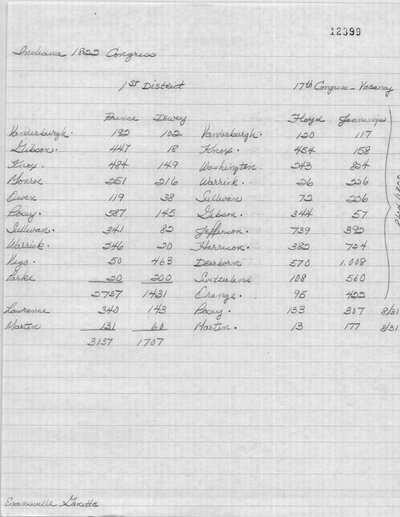 12399
Indiana 1822 Congress
1st District 17th Congress - Vacancy
Prince Dewey Floyd Jennings
Vanderburgh. 192 102 Vanderburgh. 120 117
Gibson. 447 18 Knox. 454 158
Knox. 484 149 Washington 243 824
Monroe 251 216 Warrick. 26 226
Owen 119 38 Sullivan 72 226
Posey. 587 145 Gibson. 344 57
Sullivan. 341 82 Jefferson. 739 392
Warrick. 246 20 Harrison. 382 724
Vigo. 50 463 Dearborn 570 1,008
Parke 20 200 Switzerland 108 560
2737 1431 Orange. 95 422
Lawrence 340 143 Posey. 133 307 8/31
Martin 131 60 Martin. 13 177 8/31
3137 1707
Evansville Gazette